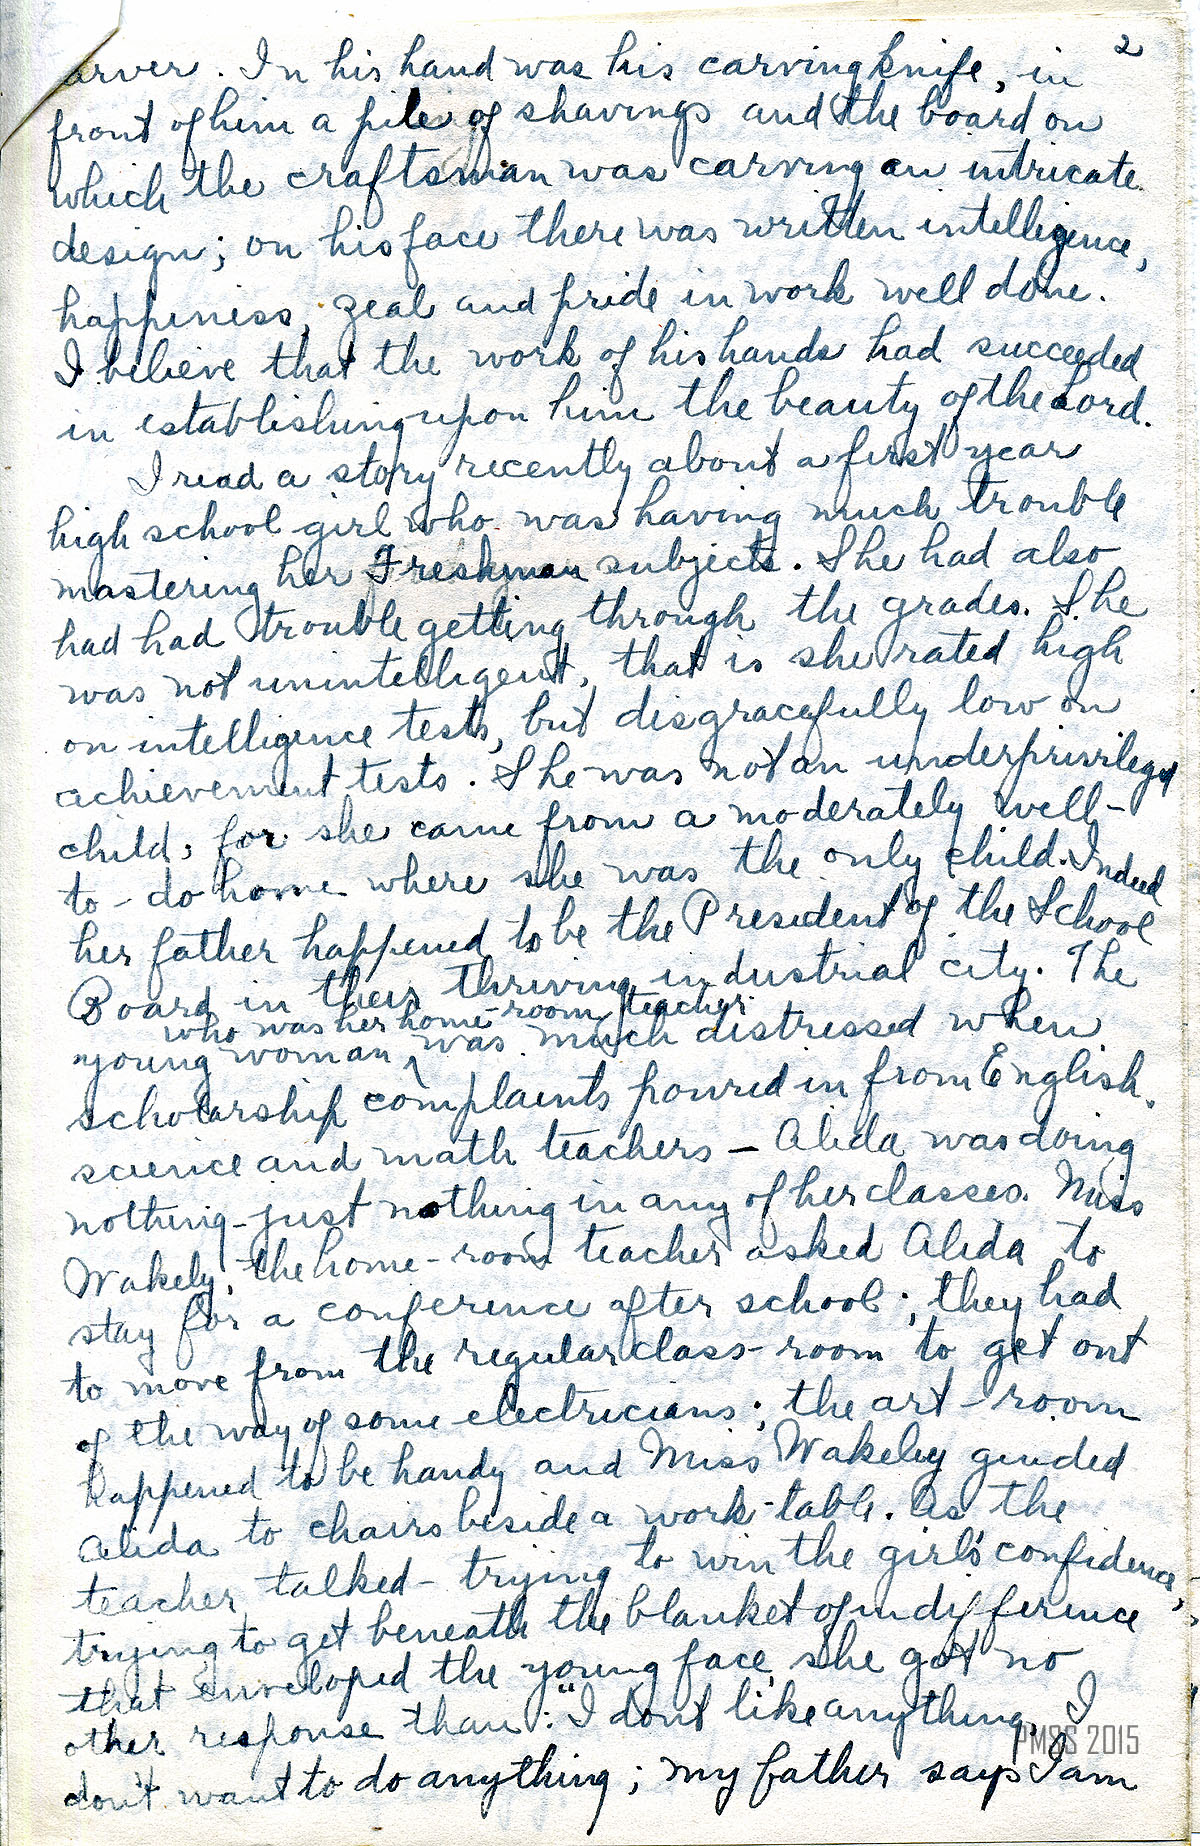 2
arver. In his hand was his carving knife, in
front of him a pile of shavings and the board on
which the craftsman was carving an intricate
design; on his face there was written intelligence,
happiness, zeal and pride in work well done.
I believe that the work of his hands had succeeded
in establishing upon him the beauty of the Lord.
I read a story recently about a first year
high school girl who was having much trouble
mastering her Freshman subjects. She had also
had had trouble getting through the grades. She
was not unintelligent, that is she rated high
on intelligence tests, but disgracefully low on
achievement tests. She was not an underprivileged
child, for she came from a moderately well-
to-do home where she was the only child. Indeed
her father happened to be the President of the School
Board in their thriving industrial city. The
who was her home-room teacher
young woman ^ was much distressed when
scholarship complaints poured in from English,
science and math teachers – Alida was doing
nothing – just nothing in any of her classes. Miss
Wakely, the home-room teacher asked Alida to
stay for a conference after school; they had
to move from the regular class-room to get out
of the way of some electricians; the art-room
happened to be handy and Miss Wakeley guided
Alida to chairs beside a work-table. As the
teacher talked – trying to win the girl's confidence,
trying to get beneath the blanket of indifference
that enveloped the young face, she got no
other response than: "I dont like anything, I
don't want to do anything; my father says I am
PMSS 2015